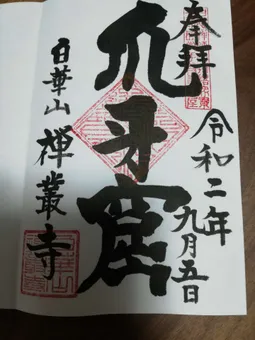 奉拝
令和二年九月五日
爪牙窟
白華山 禅叢寺